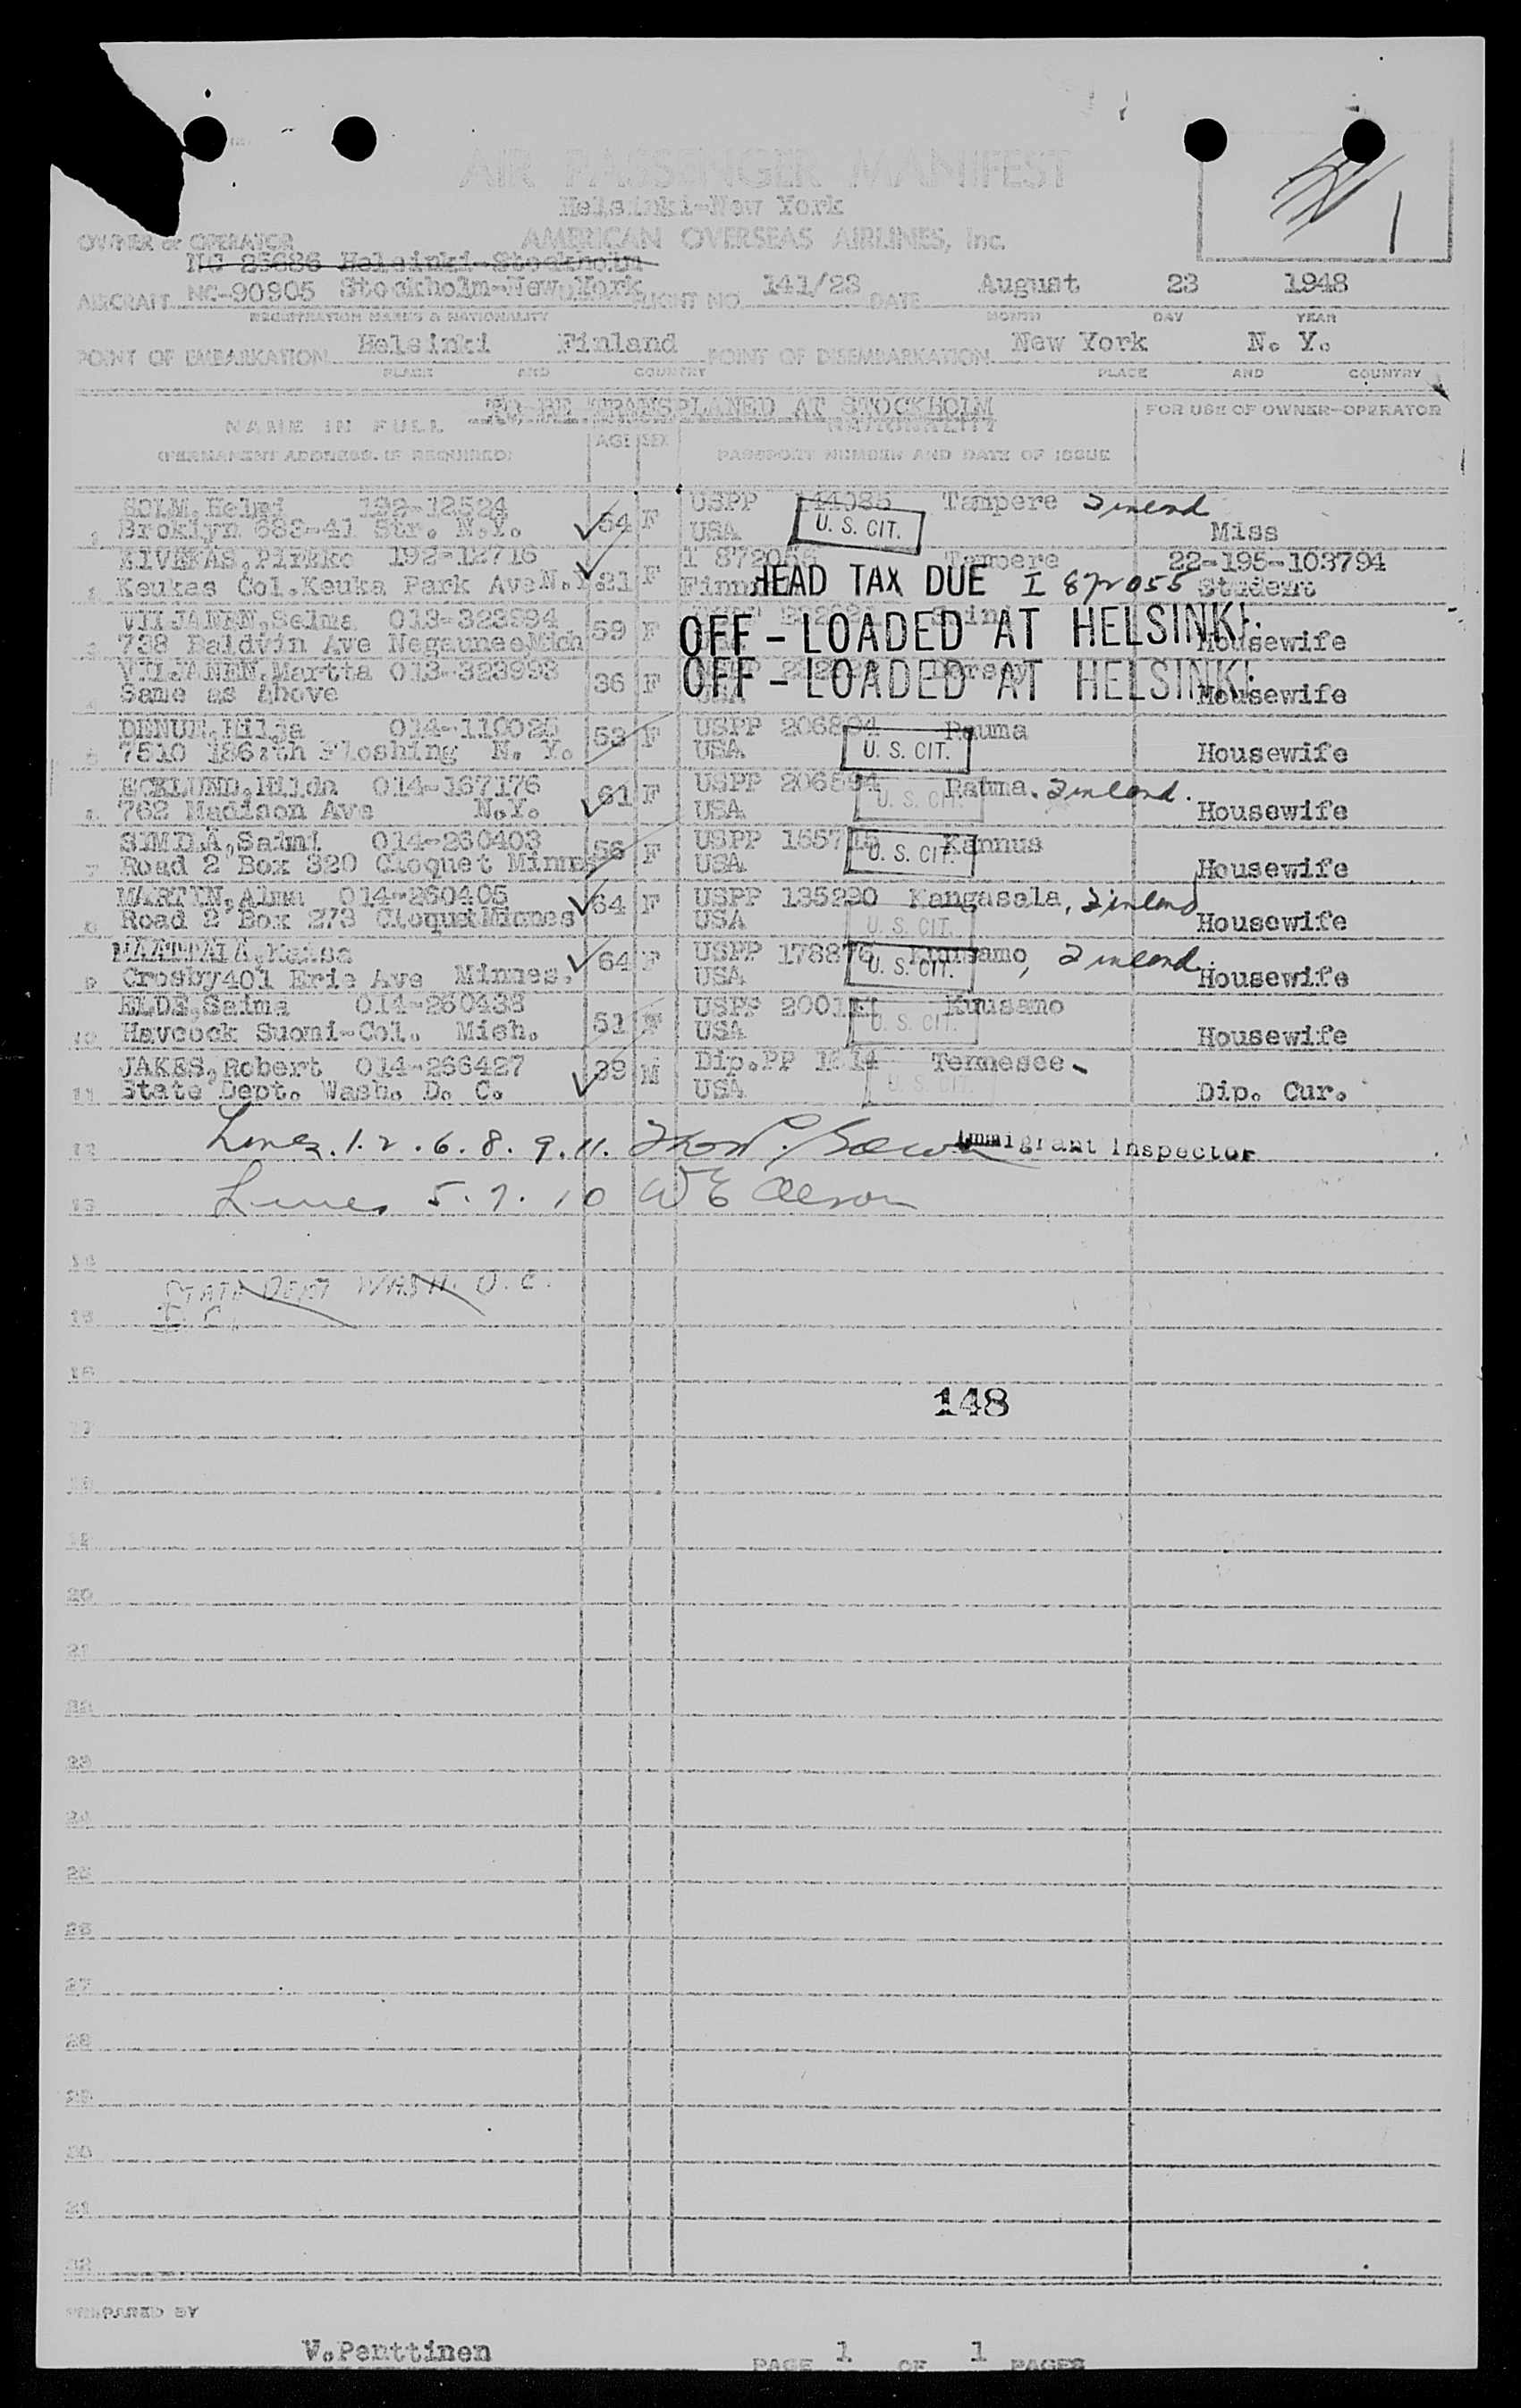 AIR PASSENGER MANIFEST
Helsinki-New York
OWNER or OPERATOR AMERICAN OVERSEAS AIRLINES, Inc.
NC 25686 Helsinki-Stockholm
AIRCRAFT NC-90905 Stockholm-New York FLIGHT NO. 141/23 DATE August 23 1948
REGISTRATION MARKS & NATIONALITY MONTH DAY YEAR
POINT OF EMBARKATION Helsinki Finland POINT OF DISEMBARKATION New York N. Y.
PLACE AND COUNTRY PLACE AND COUNTRY
TO BE TRANSPLANED AT STOCKHOLM FOR USE OF OWNER-OPERATOR
NAME IN FULL AGE SEX NATIONALITY
(PERMANENT ADDRESS, IF REQUIRED) PASSPORT NUMBER AND DATE OF ISSUE
Helmi 192-12524 54 F USPP Tampere
Broklyn 683-41 Str. N.Y. USA U. S. CIT. Miss
KIVEKAS, Pirkko 192-12716 21 F Tampere 22-195-103794
Keukas Col. Keuka Park Ave N. HEAD TAX DUE I 872055 Student
VIIJANEN, Selma 013-323994 59 F
3 738 Baldvin Ave Negaunee Mich OFF-LOADED AT HELSINKI. Housewife
VIIJANEN, Martta 013-323993 36 F
4 Same as Above OFF-LOADED AT HELSINKI. Housewife
Hilja 53 F USPP 206804 Rauma
5 7510 N. Y. USA U. S. CIT. Housewife
ECKLUND, Hilda 014-167176 61 F USPP Rauma.
6 762 Madison Ave N.Y. USA U. S. CIT. Housewife
Saimi 014-260403 56 F USPP Kannus
7 Road 2 Box 320 Cloquet USA U. S. CIT. Housewife
MARTIN, Alma 014-260405 64 F USPP 135290 Kangasala,
8 Road 2 Box 273 Cloquet Minnes USA U. S. CIT. Housewife
MAATTALA, Kaisa 64 F USPP Kuusamo,
9 Crosby 401 Erie Ave Minnes, USA U. S. CIT. Housewife
ELDE, Saima 51 F USPP Kuusamo
10 Havcock Suomi-Col. Mich. USA U. S. CIT. Housewife
JAKES, Robert 014-266427 39 M Dip.PP Tennesee
11 State Dept. Wash. D. C. USA U. S. CIT. Dip. Cur.
12 Lines. 1. 2. 6. 8. 9. 11. Immigrant Inspector
13 Lines 5. 7. 10
14
STATE DEPT WASH. D. C.
15
16
148
17
18
19
20
21
22
23
24
25
26
27
28
29
30
31
32
PREPARED BY
V.Penttinen PAGE 1 OF 1 PAGES